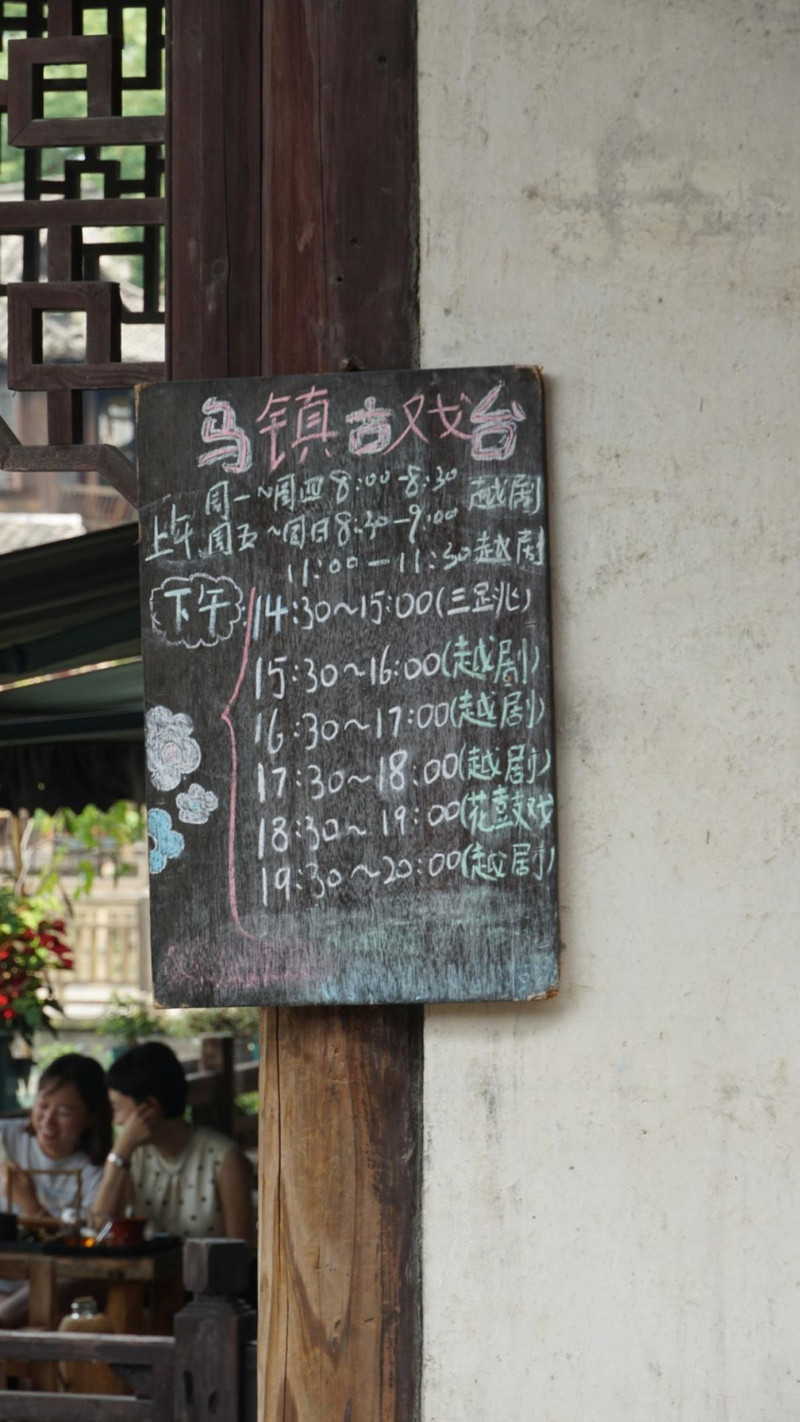 乌镇古戏台
上午 周一~周四 8:00-8:30 越剧
周五~周日 8:30-9:00
11:00-11:30 越剧
下午 14:30~15:00(三跳)
15:30~16:00(越剧)
16:30~17:00(越剧)
17:30~18:00(越剧)
18:30~19:00(花鼓戏
19:30~20:00(越剧)